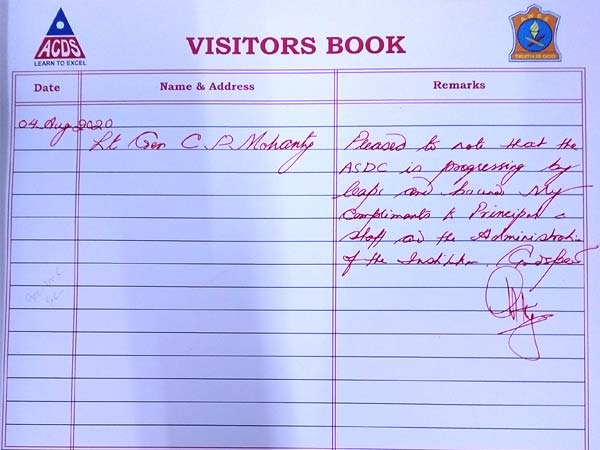 ACDS
LEARN TO EXCEL
VISITORS BOOK
AWES
TRUTH IS GOD
Date
Name & Address
Remarks
04 Aug 2020
Lt Gen C P Mohanty
Pleased to note that the
ASDC is progressing by
leaps and bounds My
Compliments to Principal &
staff and the Administration
of the Institution. Godspeed